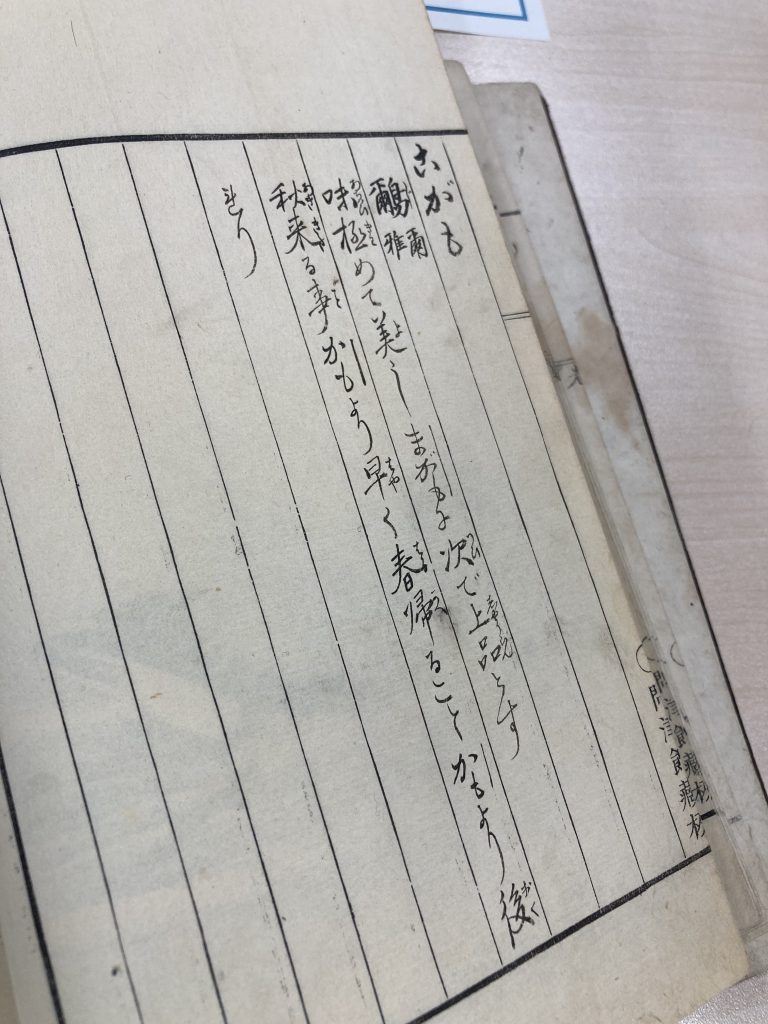 こがも
鸍 爾雅
味極めて美しまがもに次で上品とす
秋来る事かもより早く春帰ることかもより後
れり
問津館藏